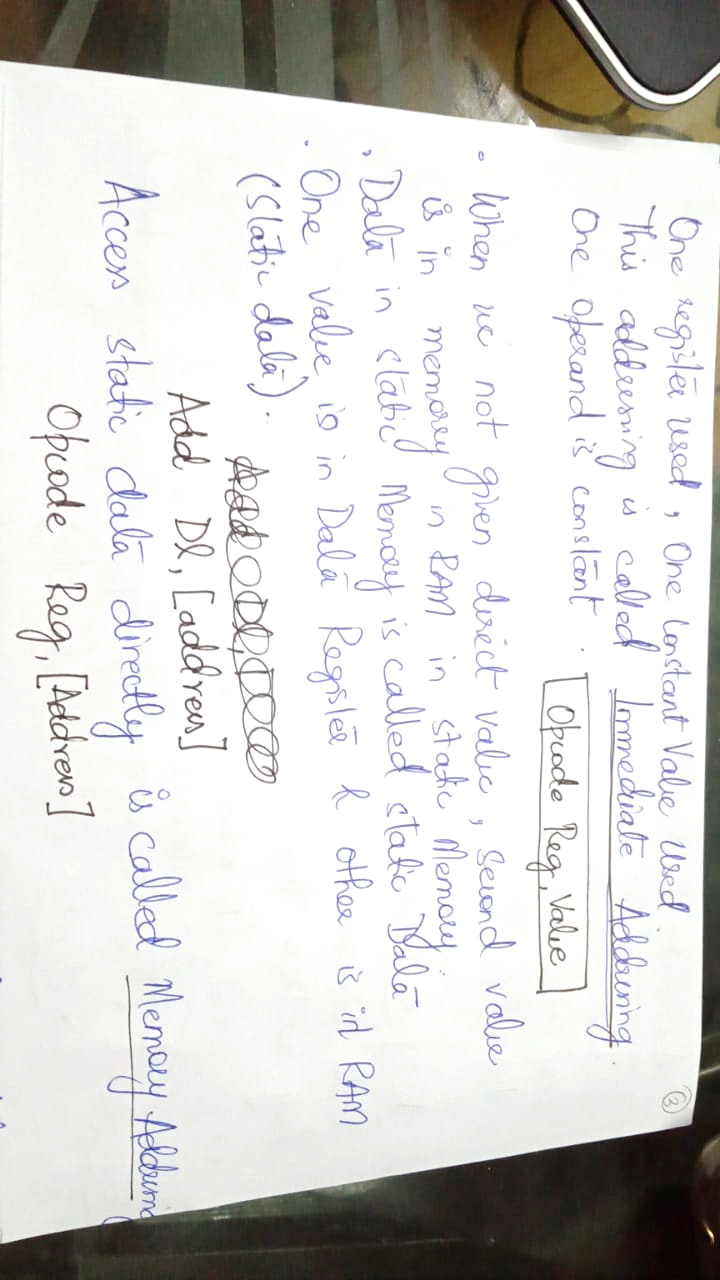 ③
One register used, One Constant Value used
This addressing is called Immediate Addressing.
One operand is constant.
Opcode Reg, Value
• When we not given direct value, second value
is in memory in RAM in static Memory.
• Data in static Memory is called static Data
• One value is in Data Register & other is in RAM
(Static data).
Add Dl, [address]
Access static data directly is called Memory Addressing
Opcode Reg, [Address]